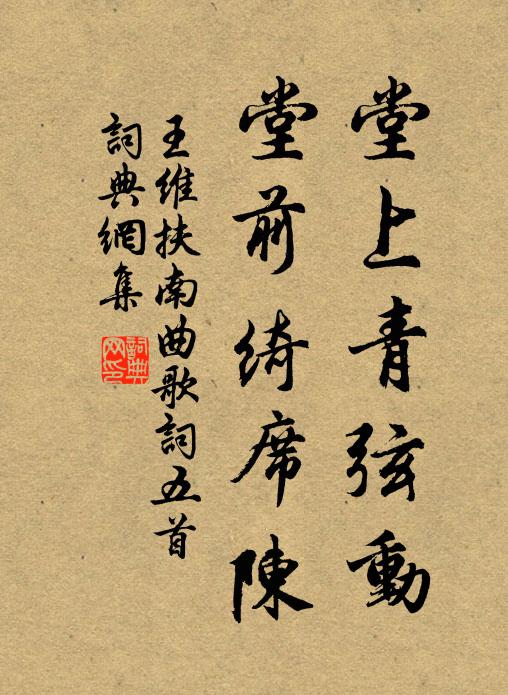 堂上青弦動
堂前綺席陳
王維扶南曲歌詞五首
詞典網集
詞典网印